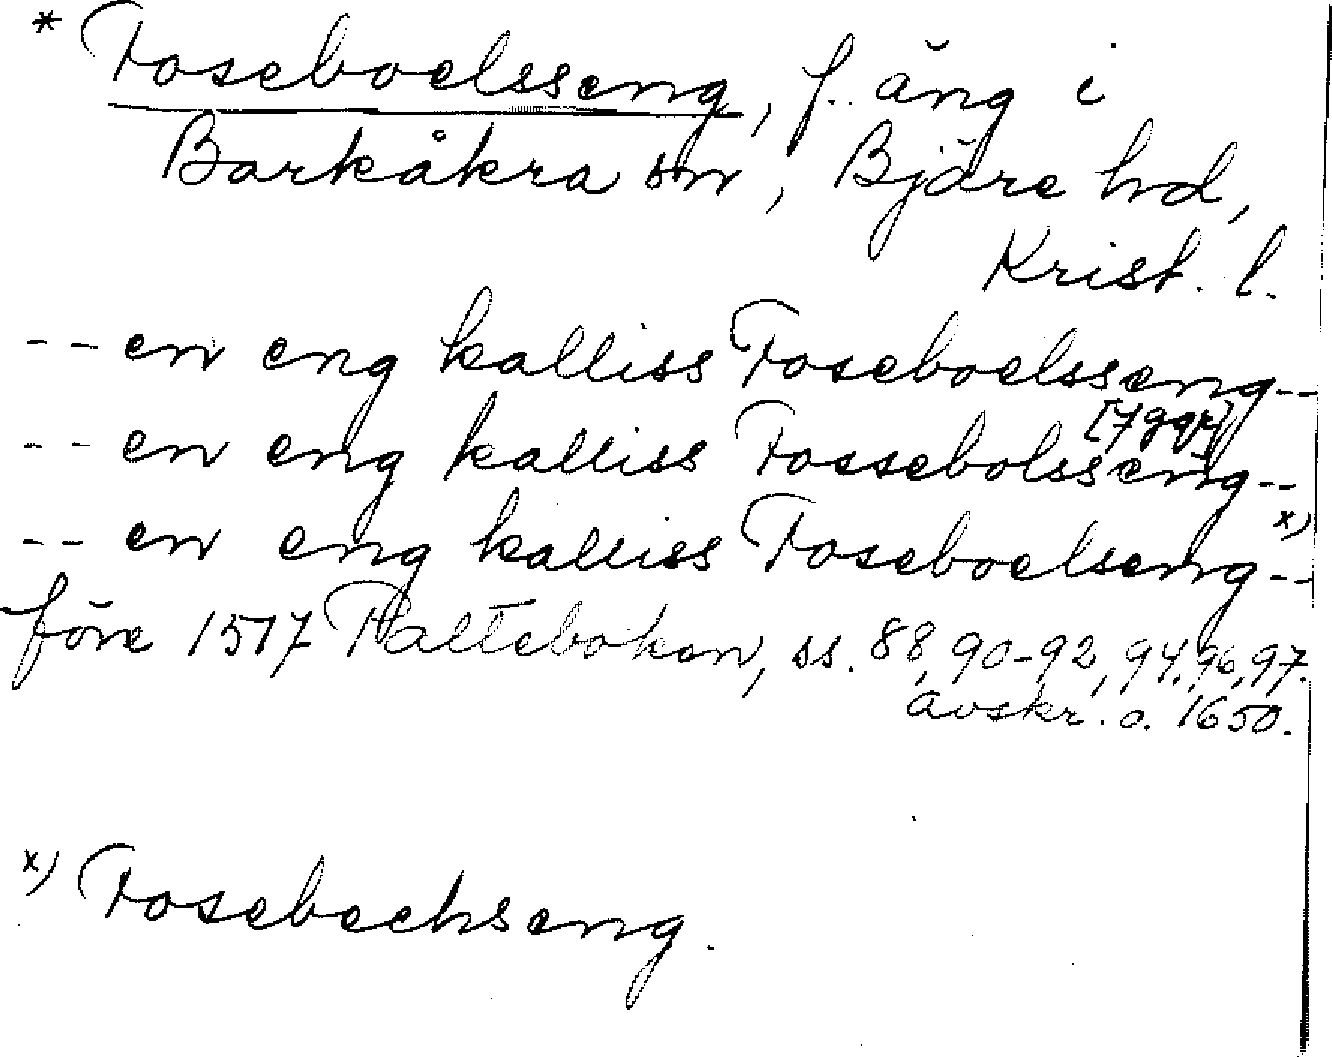 * Foseboelsseng, f. äng i
Barkåkra sn, Bjäre hd,
Krist. l.
-- en eng kalliss Foseboelsseng --
[7 ggr]
-- en eng kalliss Fossebolsseng --
x)
-- en eng kalliss Foseboelseng --
före 1517 Paltebokon, ss. 88, 90-92, 94, 96, 97.
avskr. o. 1650.
x) Fosebechseng.